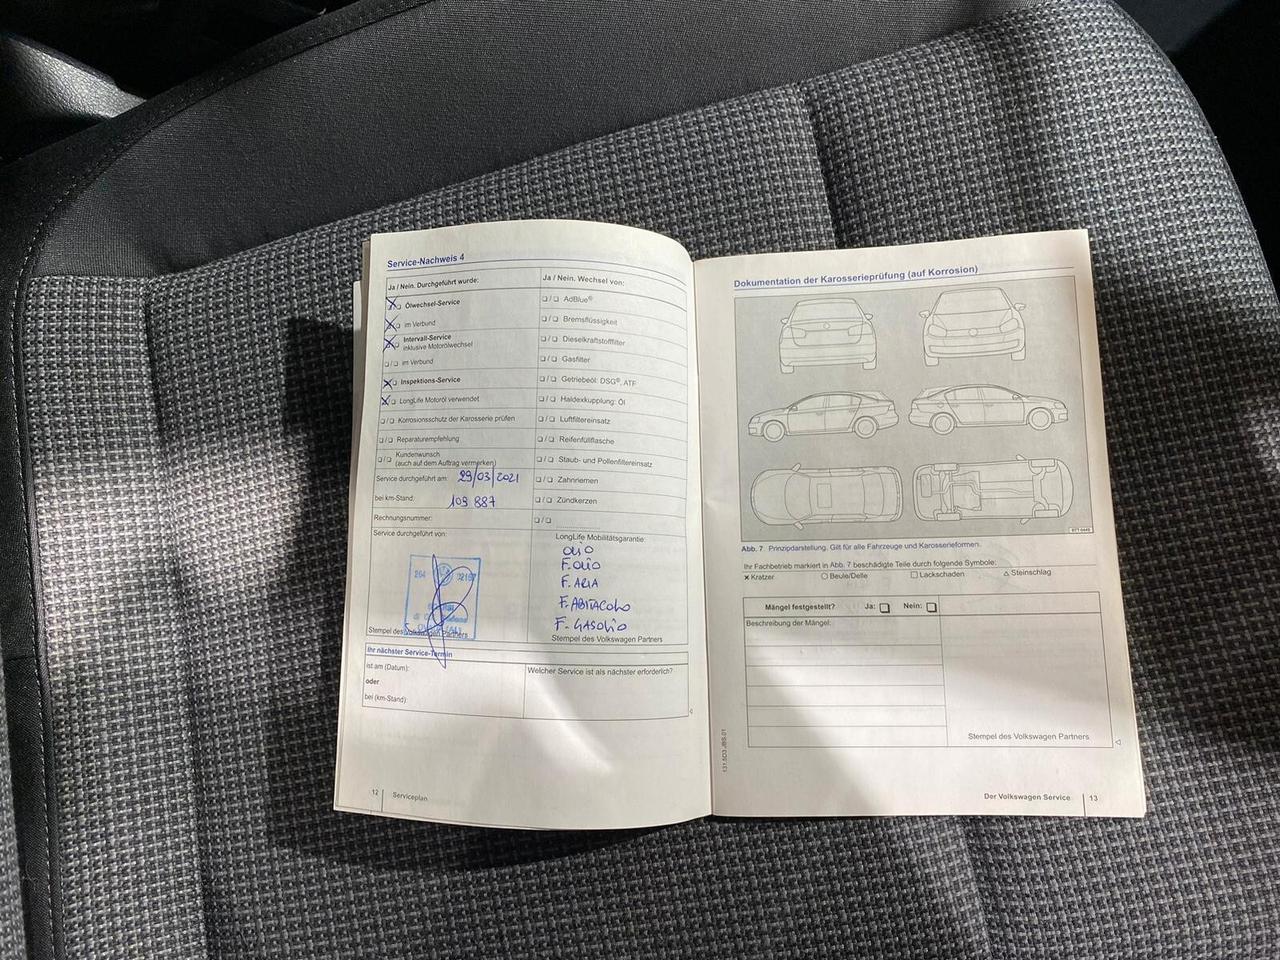 Service-Nachweis 4
Ja / Nein. Durchgeführt wurde:
Ölwechsel-Service
im Verbund
Intervall-Service
inklusive Motorölwechsel
im Verbund
Inspektions-Service
LongLife Motoröl verwendet
Korrosionsschutz der Karosserie prüfen
Reparaturempfehlung
Kundenwunsch
(auch auf dem Auftrag vermerken)
Service durchgeführt am: 29/03/2021
bei km-Stand: 109 887
Rechnungsnummer:
Service durchgeführt von:
Stempel des Volkswagen Partners
Ja / Nein. Wechsel von:
AdBlue®
Bremsflüssigkeit
Dieselkraftstofffilter
Gasfilter
Getriebeöl: DSG®, ATF
Haldexkupplung: Öl
Luftfiltereinsatz
Reifenfüllflasche
Staub- und Pollenfiltereinsatz
Zahnriemen
Zündkerzen
LongLife Mobilitätsgarantie:
OLIO
F. OLIO
F. ARIA
F. ABITACOLO
F. GASOLIO
Stempel des Volkswagen Partners
Ihr nächster Service-Termin
ist am (Datum):
oder
bei (km-Stand):
Welcher Service ist als nächster erforderlich?
12 Serviceplan
Dokumentation der Karosserieprüfung (auf Korrosion)
Abb. 7 Prinzipdarstellung. Gilt für alle Fahrzeuge und Karosserieformen.
Ihr Fachbetrieb markiert in Abb. 7 beschädigte Teile durch folgende Symbole:
Kratzer Beule/Delle Lackschaden Steinschlag
Mängel festgestellt? Ja: Nein:
Beschreibung der Mängel:
Stempel des Volkswagen Partners
Der Volkswagen Service 13